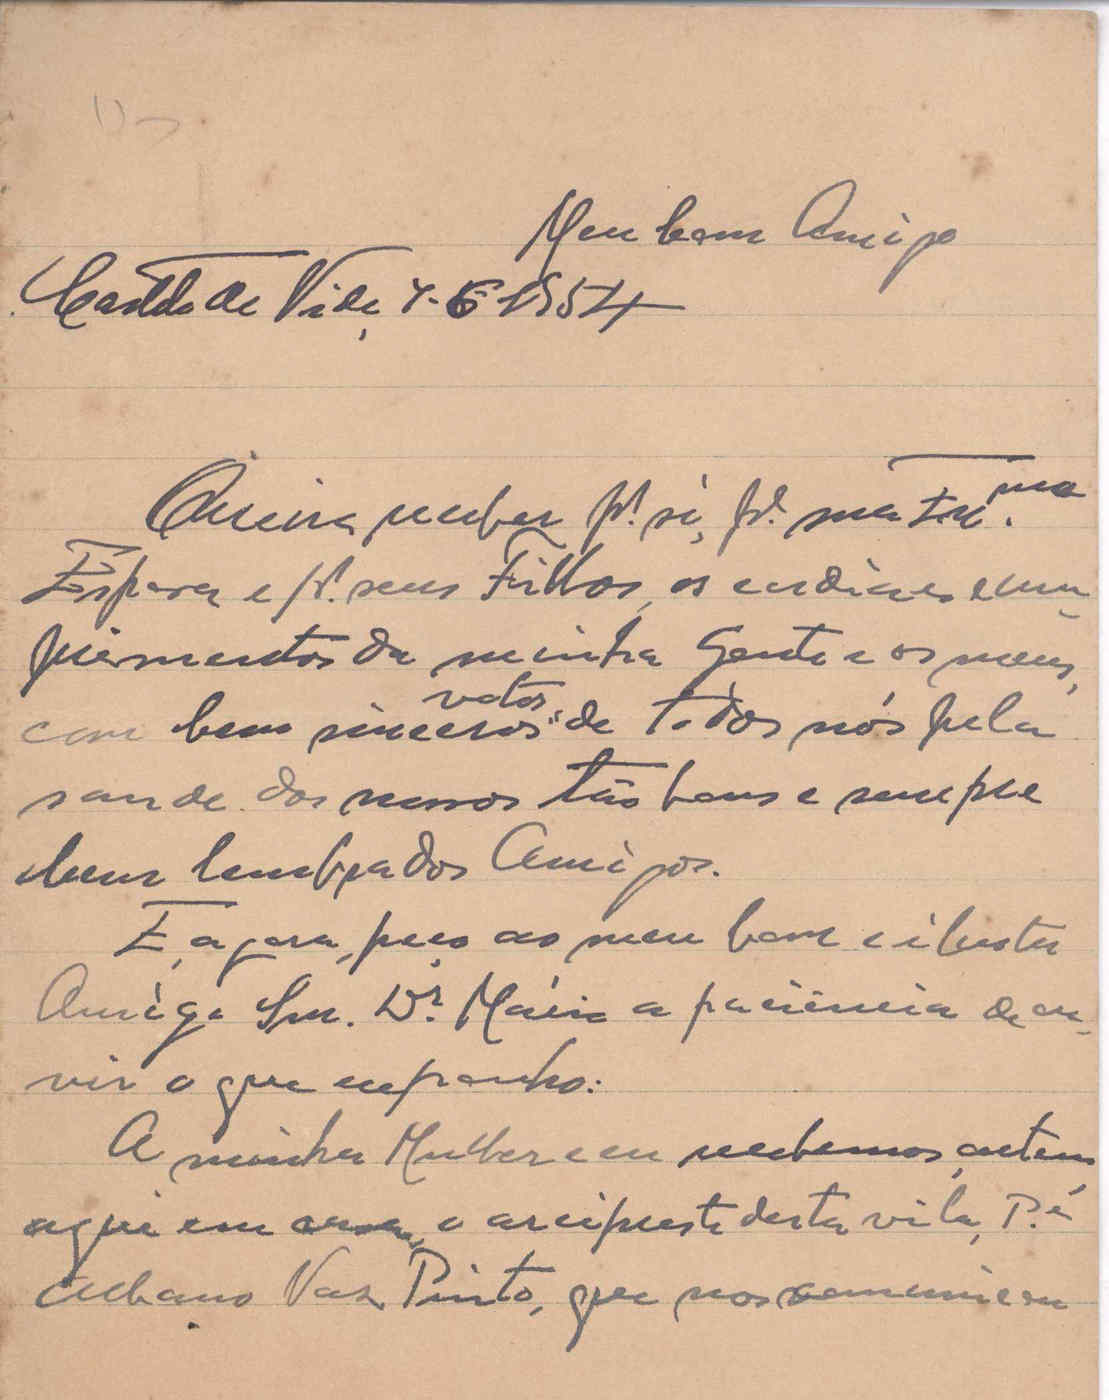 Meu bom Amigo
Castelo de Vide, 7-6-1954
Queira receber pr. si, pr. sua Ex.ma
Espoza e pr. seus Filhos, os cordiaes cum-
primentos da minha Gente e os meus,
com bem sinceros votos, de todos nós pela
saude dos nossos tão bons e sempre
bem lembrados Amigos.
E, agora, peço ao meu bom e ilustre
Amigo Snr. Dr. Mário a paciência de ou-
vir o que exponho:
A minha Mulher e eu recebemos, ontem,
aqui em casa, o arcipreste desta vila, P.e
Albano Vaz Pinto, que nos comunicou